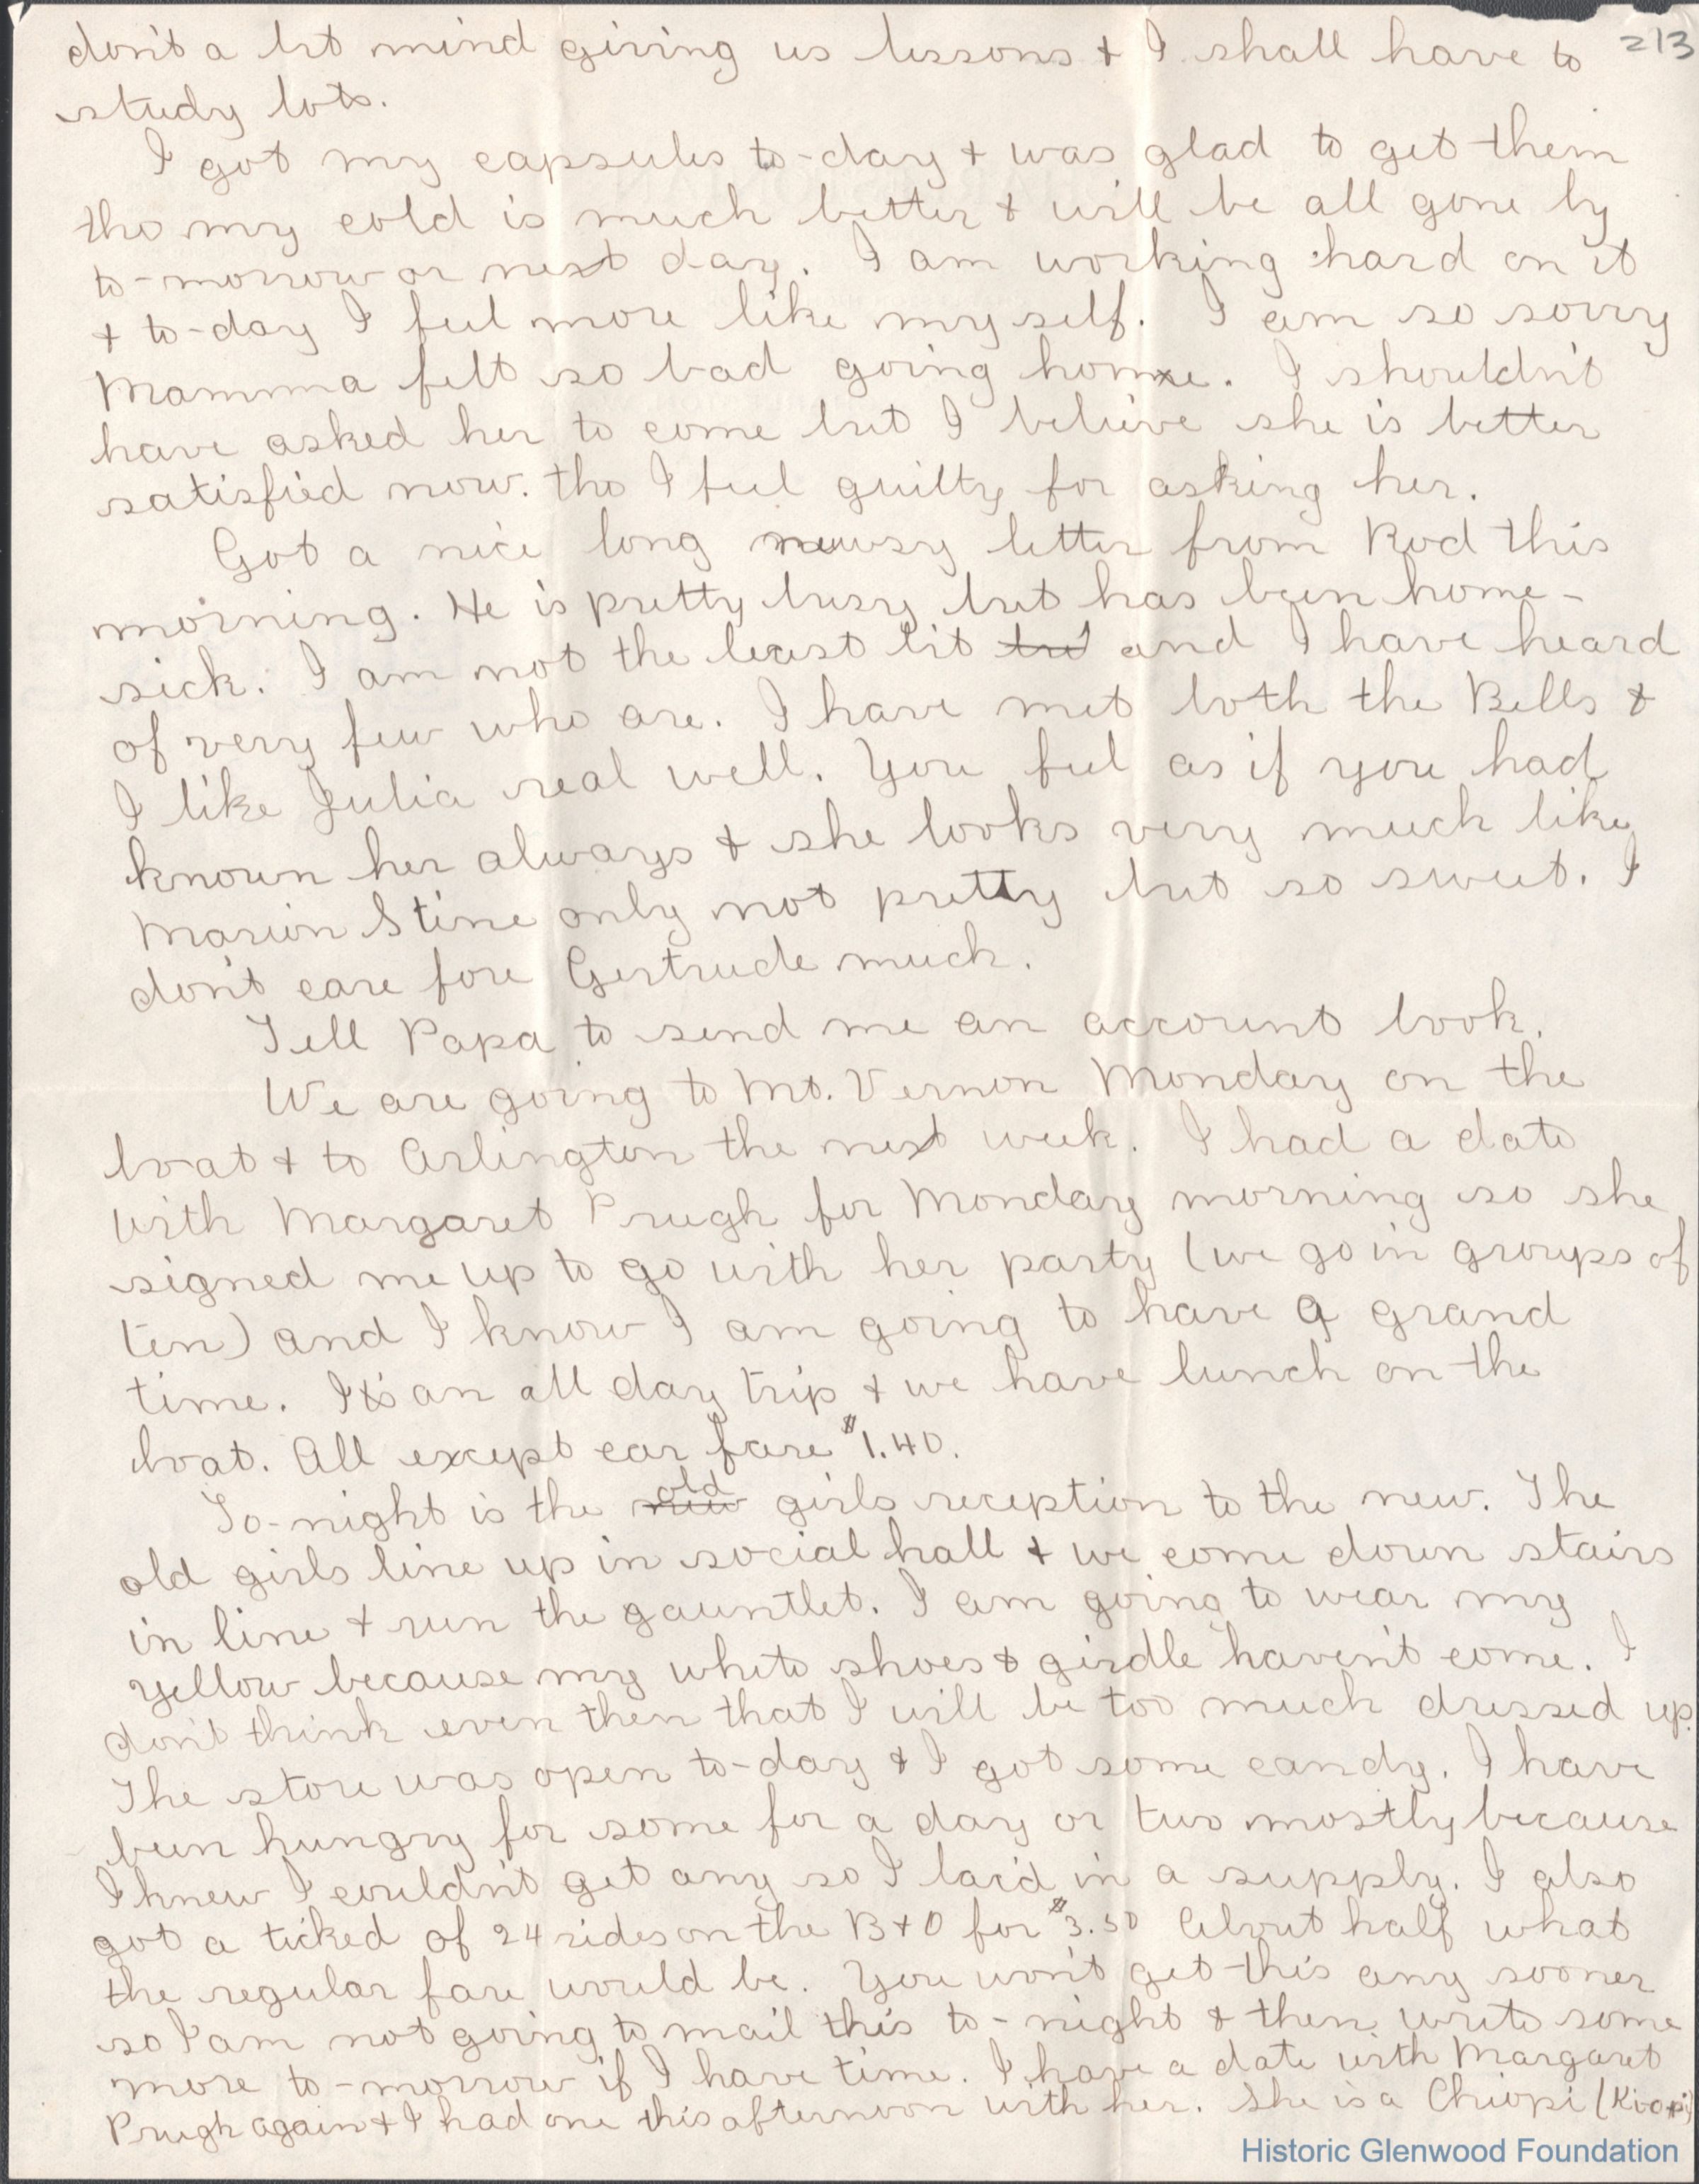 213
don't a bit mind giving us lessons & I shall have to
study lots.
I got my capsules to-day & was glad to get them
tho my cold is much better & will be all gone by
to-morrow or next day. I am working hard on it
& to-day I feel more like myself. I am so sorry
Mamma felt so bad going home. I shouldn't
have asked her to come but I believe she is better
satisfied now. tho I feel guilty for asking her.
Got a nice long newsy letter from Rod this
morning. He is pretty busy but has been home-
sick. I am not the least bit and I have heard
of very few who are. I have met both the Bells &
I like Julia real well. You feel as if you had
known her always & she looks very much like
Marion Stine only not pretty but so sweet. I
don't care fore Gertrude much.
Tell Papa to send me an account book.
We are going to Mt. Vernon Monday on the
boat & to Arlington the next week. I had a date
with Margaret Prugh for Monday morning so she
signed me up to go with her party (we go in groups of
ten) and I know I am going to have a grand
time. Its an all day trip & we have lunch on the
boat. All except car fare $1.40.
To-night is the new old girls reception to the new. The
old girls line up in social hall & we come down stairs
in line & run the gauntlet. I am going to wear my
yellow because my white shoes & girdle haven't come. I
don't think even then that I will be too much dressed up.
The store was open to-day & I got some candy. I have
been hungry for some for a day or two mostly because
I knew I couldn't get any so I laid in a supply. I also
got a ticked of 24 rides on the B+O for $3.50 About half what
the regular fare would be. You won't get this any sooner
so I am not going to mail this to-night & then write some
more to-morrow if I have time. I have a date with Margaret
Prugh again & I had one this afternoon with her. She is a Chiopi (Kiopi)
Historic Glenwood Foundation